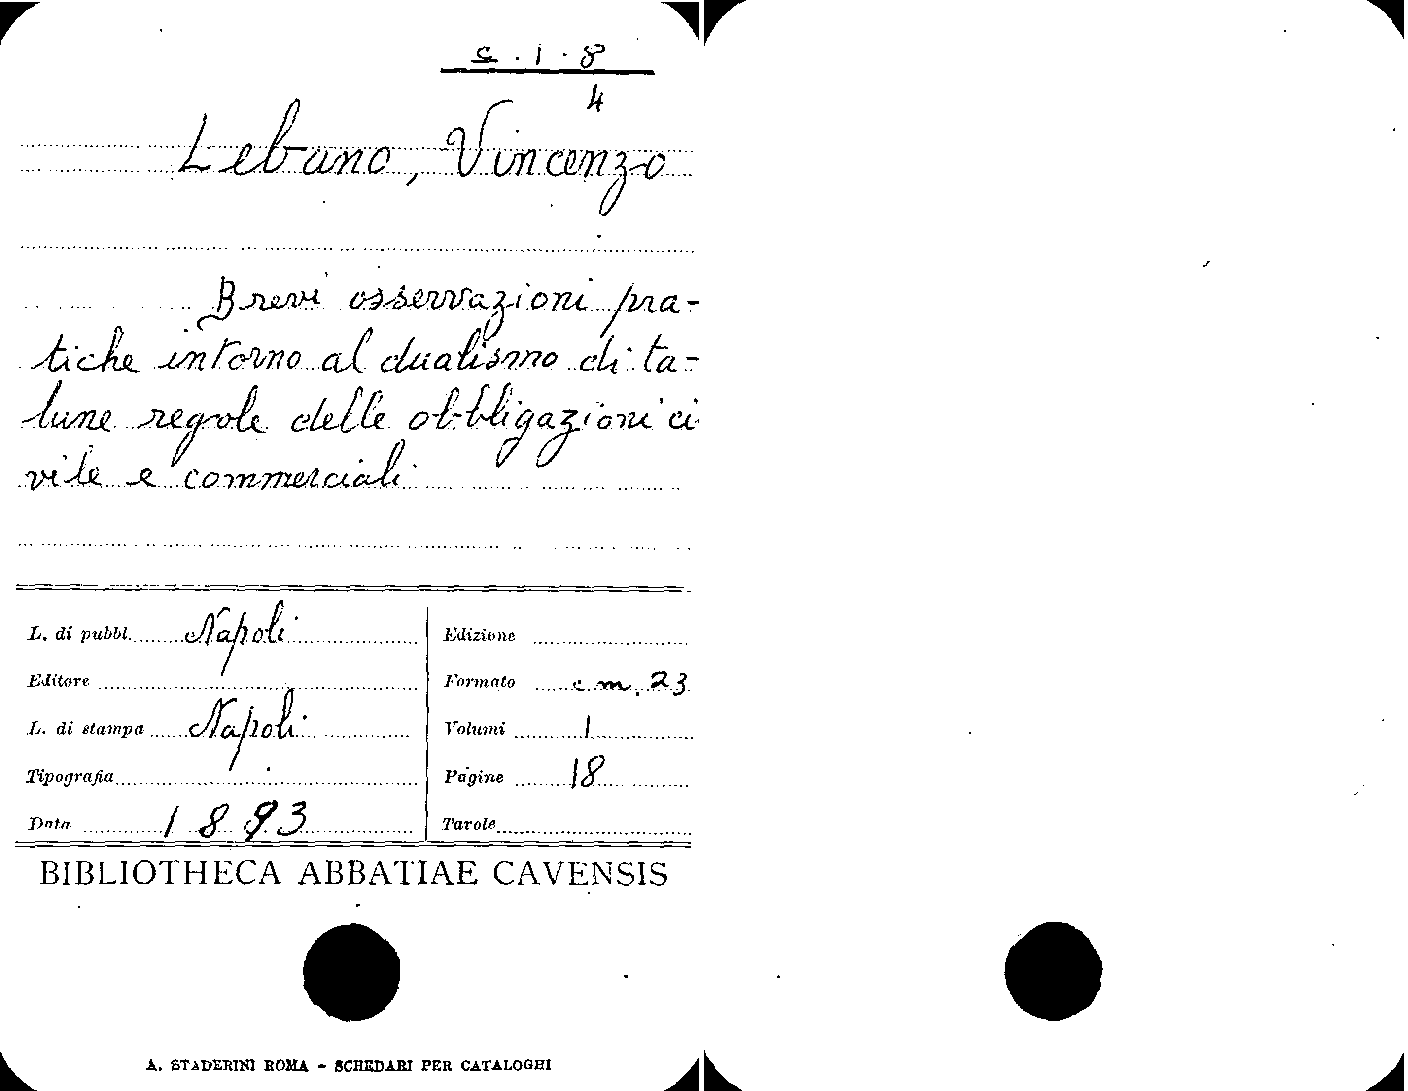 c . 1 . 8
4
Lebano, Vincenzo
Brevi osservazioni pra-
tiche intorno al dualismo di ta-
lune regole delle obbligazioni ci
vile e commerciali
L. di pubbl. Napoli
Editore
L. di stampa Napoli
Tipografia
Data 1893
Edizione
Formato cm. 23
Volumi 1
Pagine 18
Tavole
BIBLIOTHECA ABBATIAE CAVENSIS
A. STADERINI ROMA - SCHEDARI PER CATALOGHI